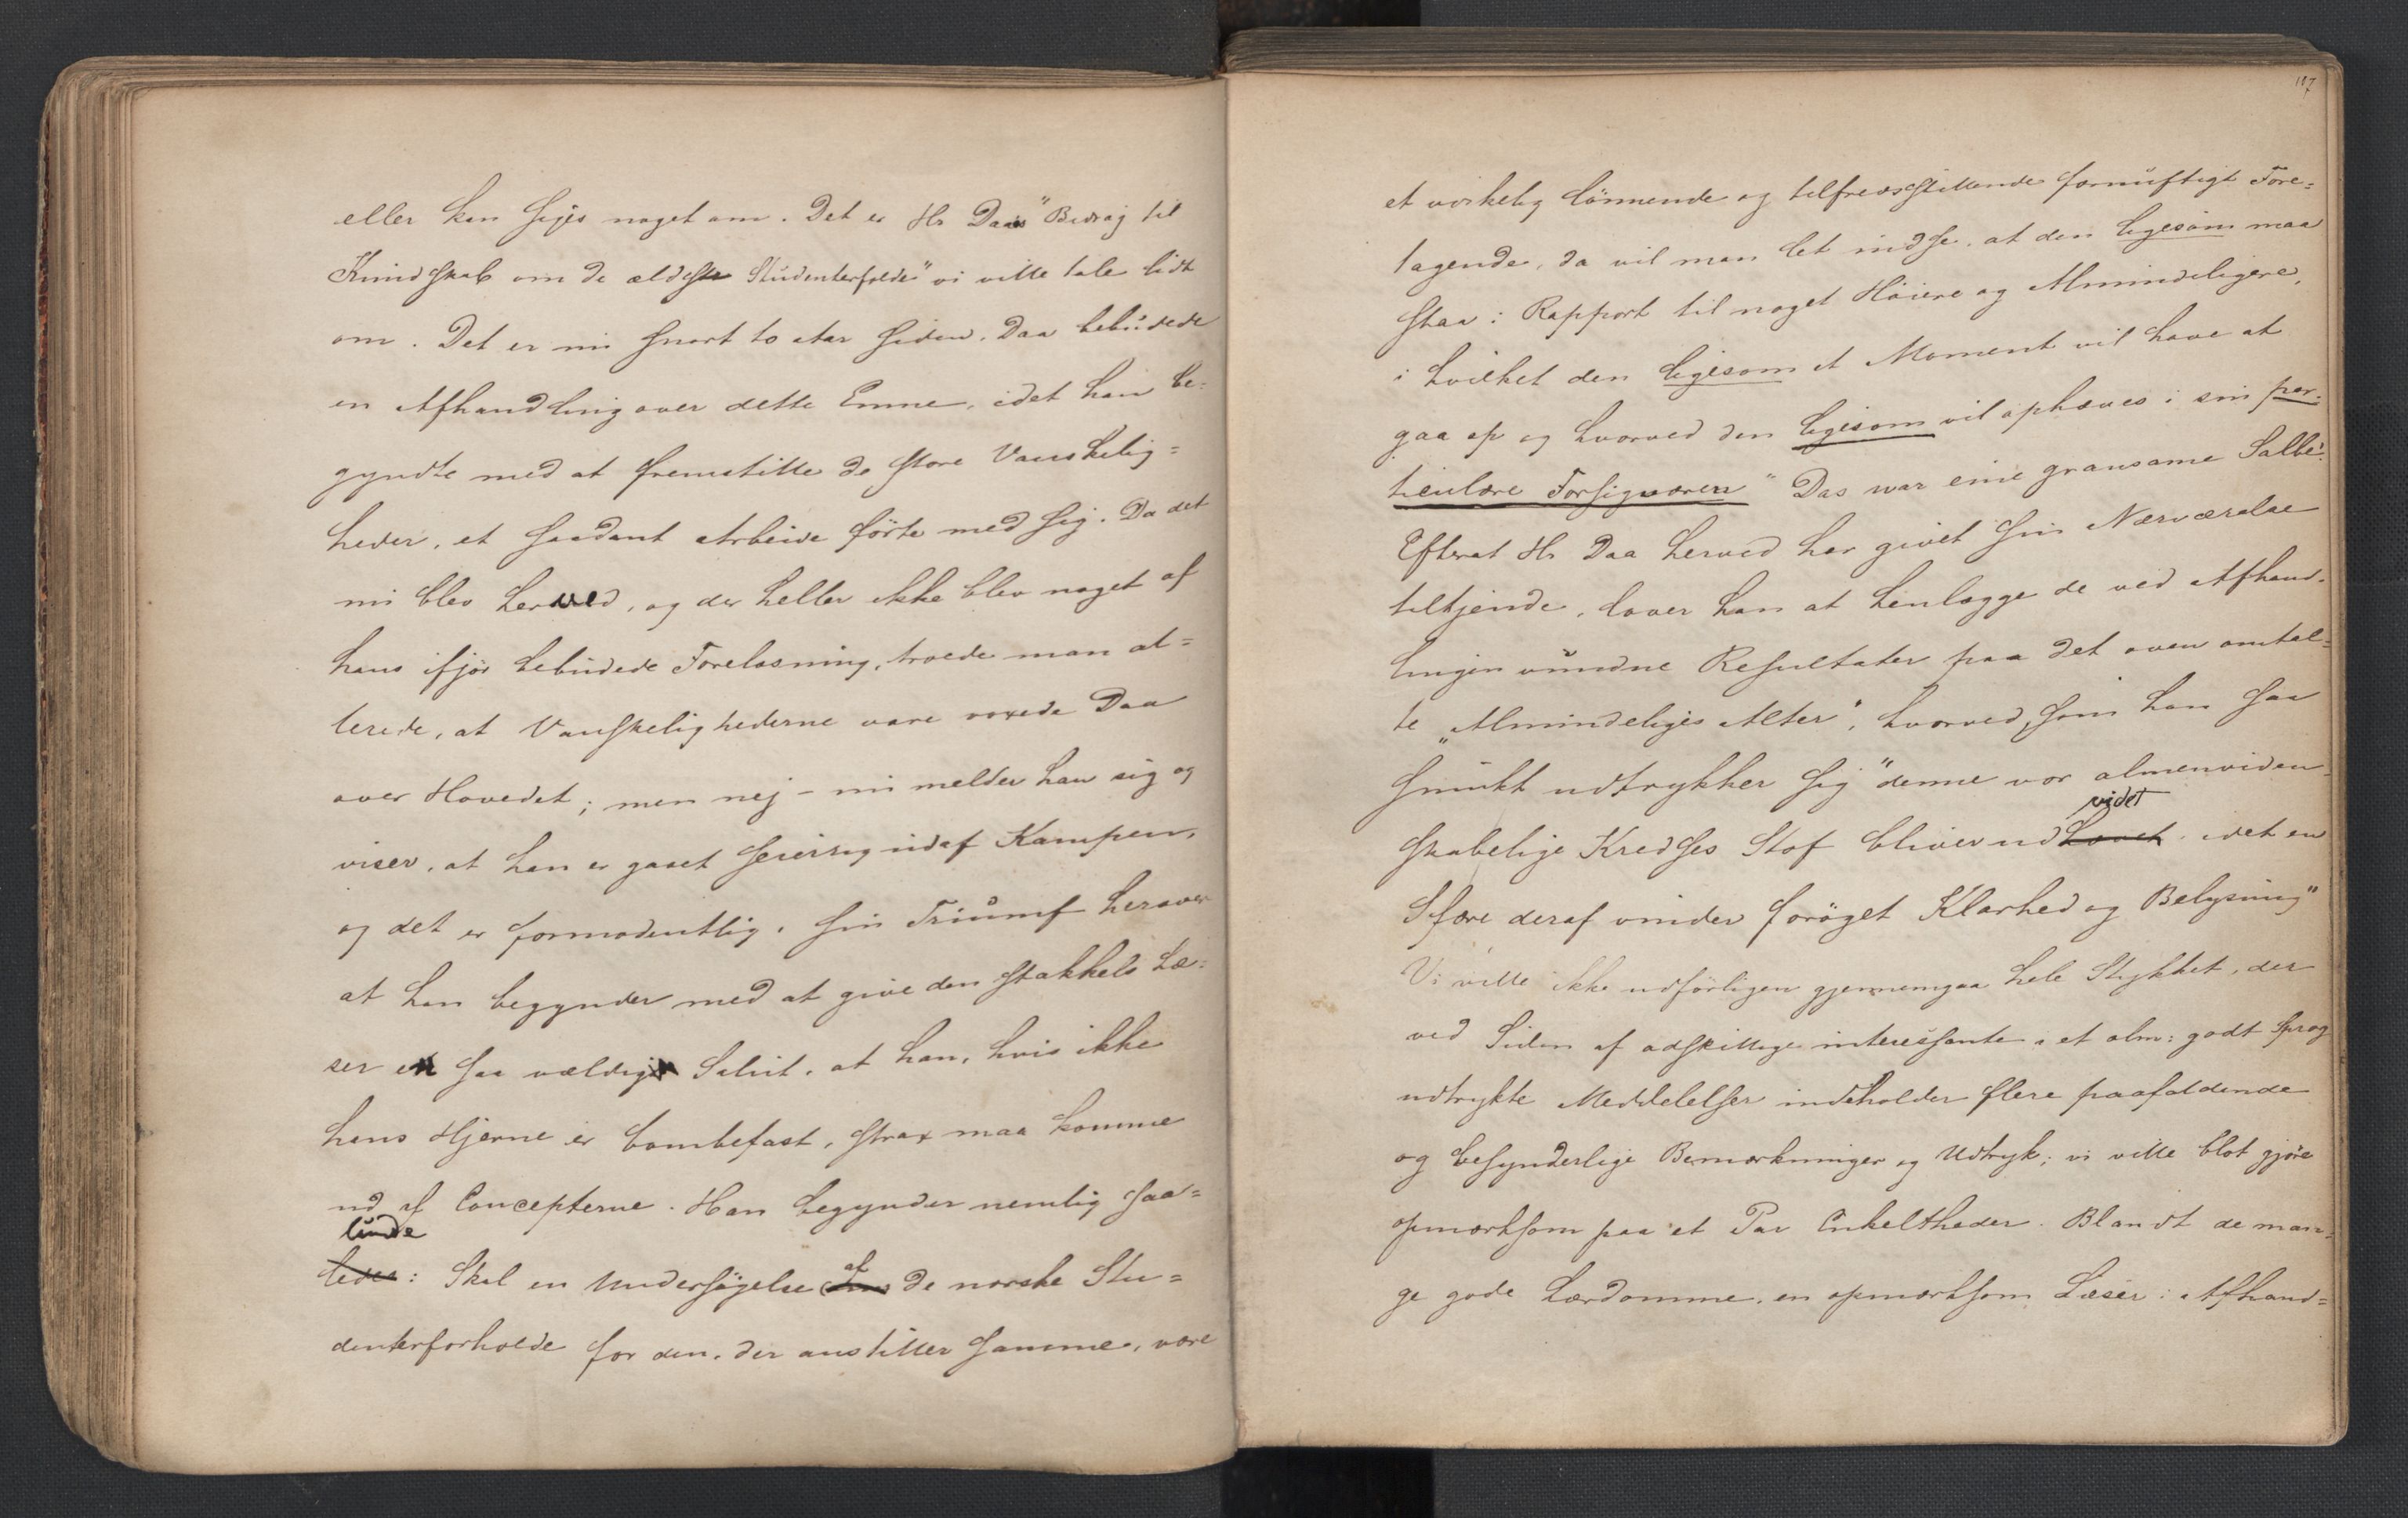 eller kan siges noget om. Det er Hr Daas "Bidrag til
Kundskab om de ældste Studenterfolde" vi ville tale lidt
om. Det er nu snart to Aar siden, Daa bebudede
en Afhandling over dette Emne, idet han be=
gyndte med at fremstille de store Vanskelig=
heder, et saadant Arbeide förte med sig. Da det
nu blev herved, og der heller ikke blev noget af
hans ifjor bebudede Forelæsning, troede man al=
lerede, at Vanskelighederne vare voxede Daa
over Hovedet; men nej – nu melder han sig og
viser, at han er gaaet seierrig ud af Kampen,
og det er formodentlig i sin Triumf herover
at han begynder med at give den stakkels Læ=
ser en saa vældig Salut, at han, hvis ikke
hans Hjerne er bombefast, strax maa komme
ud af Concepterne. Han begynder nemlig saa=
lunde
ledes: Skal en Undersögelse af de norske Stu=
denterforholde for den, der anstiller samme, være
187
et virkelig lönnende og tilfredsstillende fornuftigt Fore=
tagende, da vil man let indse, at den ligesom maa
staa i Rapport til noget Höiere og Almindeligere,
i hvilket den ligesom et Moment vil have at
gaa op og hvorved den ligesom vil ophæves i sin par=
ticulære Forsigværen" Das war eine grausame Salbe!
Efterat Hr Daa herved har givet sin Nærværelse
tilkjende, lover han at henlægge de ved Afhand=
lingen vundne Resultater paa det oven omtal=
te "Almindeliges Alter", hvorved, som han saa
smukt udtrykker sig "denne vor almenviden=
videt
skabelige Kredses Stof bliver ud idet en
Sfære deraf vinder foröget Klarhed og Belysning"
Vi ville ikke udförligen gjennemgaa hele Stykket, der
ved Siden af adskillige interessante i et alm: godt Sprog
udtrykte Meddelelser indeholder flere paafaldende
og besynderlige Bemærkninger og Udtryk; vi ville blot gjöre
opmærksom paa et Par Enkeltheder. Blandt de man=
ge gode Lærdomme, en opmærksom Læser i Afhand=